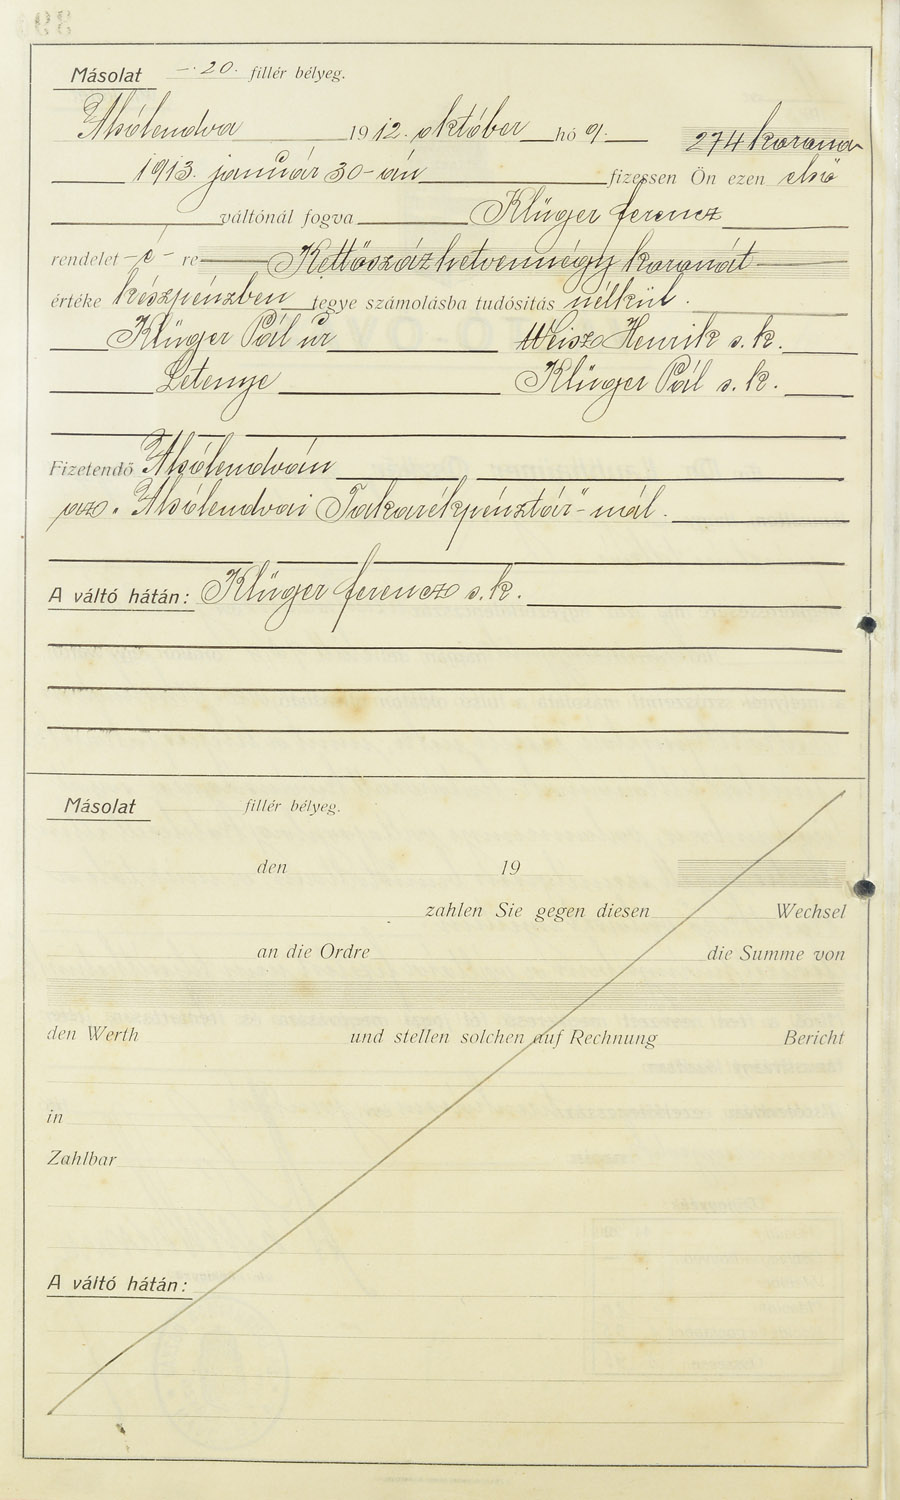 Másolat —.20. fillér bélyeg.
Alsólendva 1912. október hó 9. 274 korona
1913. január 30-án fizessen Ön ezen első
váltónál fogva Klüger ferencz
rendelet -é- re Kettőszázhetvennégy koronát
értéke készpénzben tegye számolásba tudósítás nélkül.
Klüger Pál úr Weisz Henrik s.k.
Letenye Klüger Pál s.k.
Fizetendő Alsólendván
az „Alsólendvai Takarékpénztár"-nál.
A váltó hátán: Klüger ferencz s.k.
Másolat fillér bélyeg.
den 19
zahlen Sie gegen diesen Wechsel
an die Ordre die Summe von
den Werth und stellen solchen auf Rechnung Bericht
in
Zahlbar
A váltó hátán: